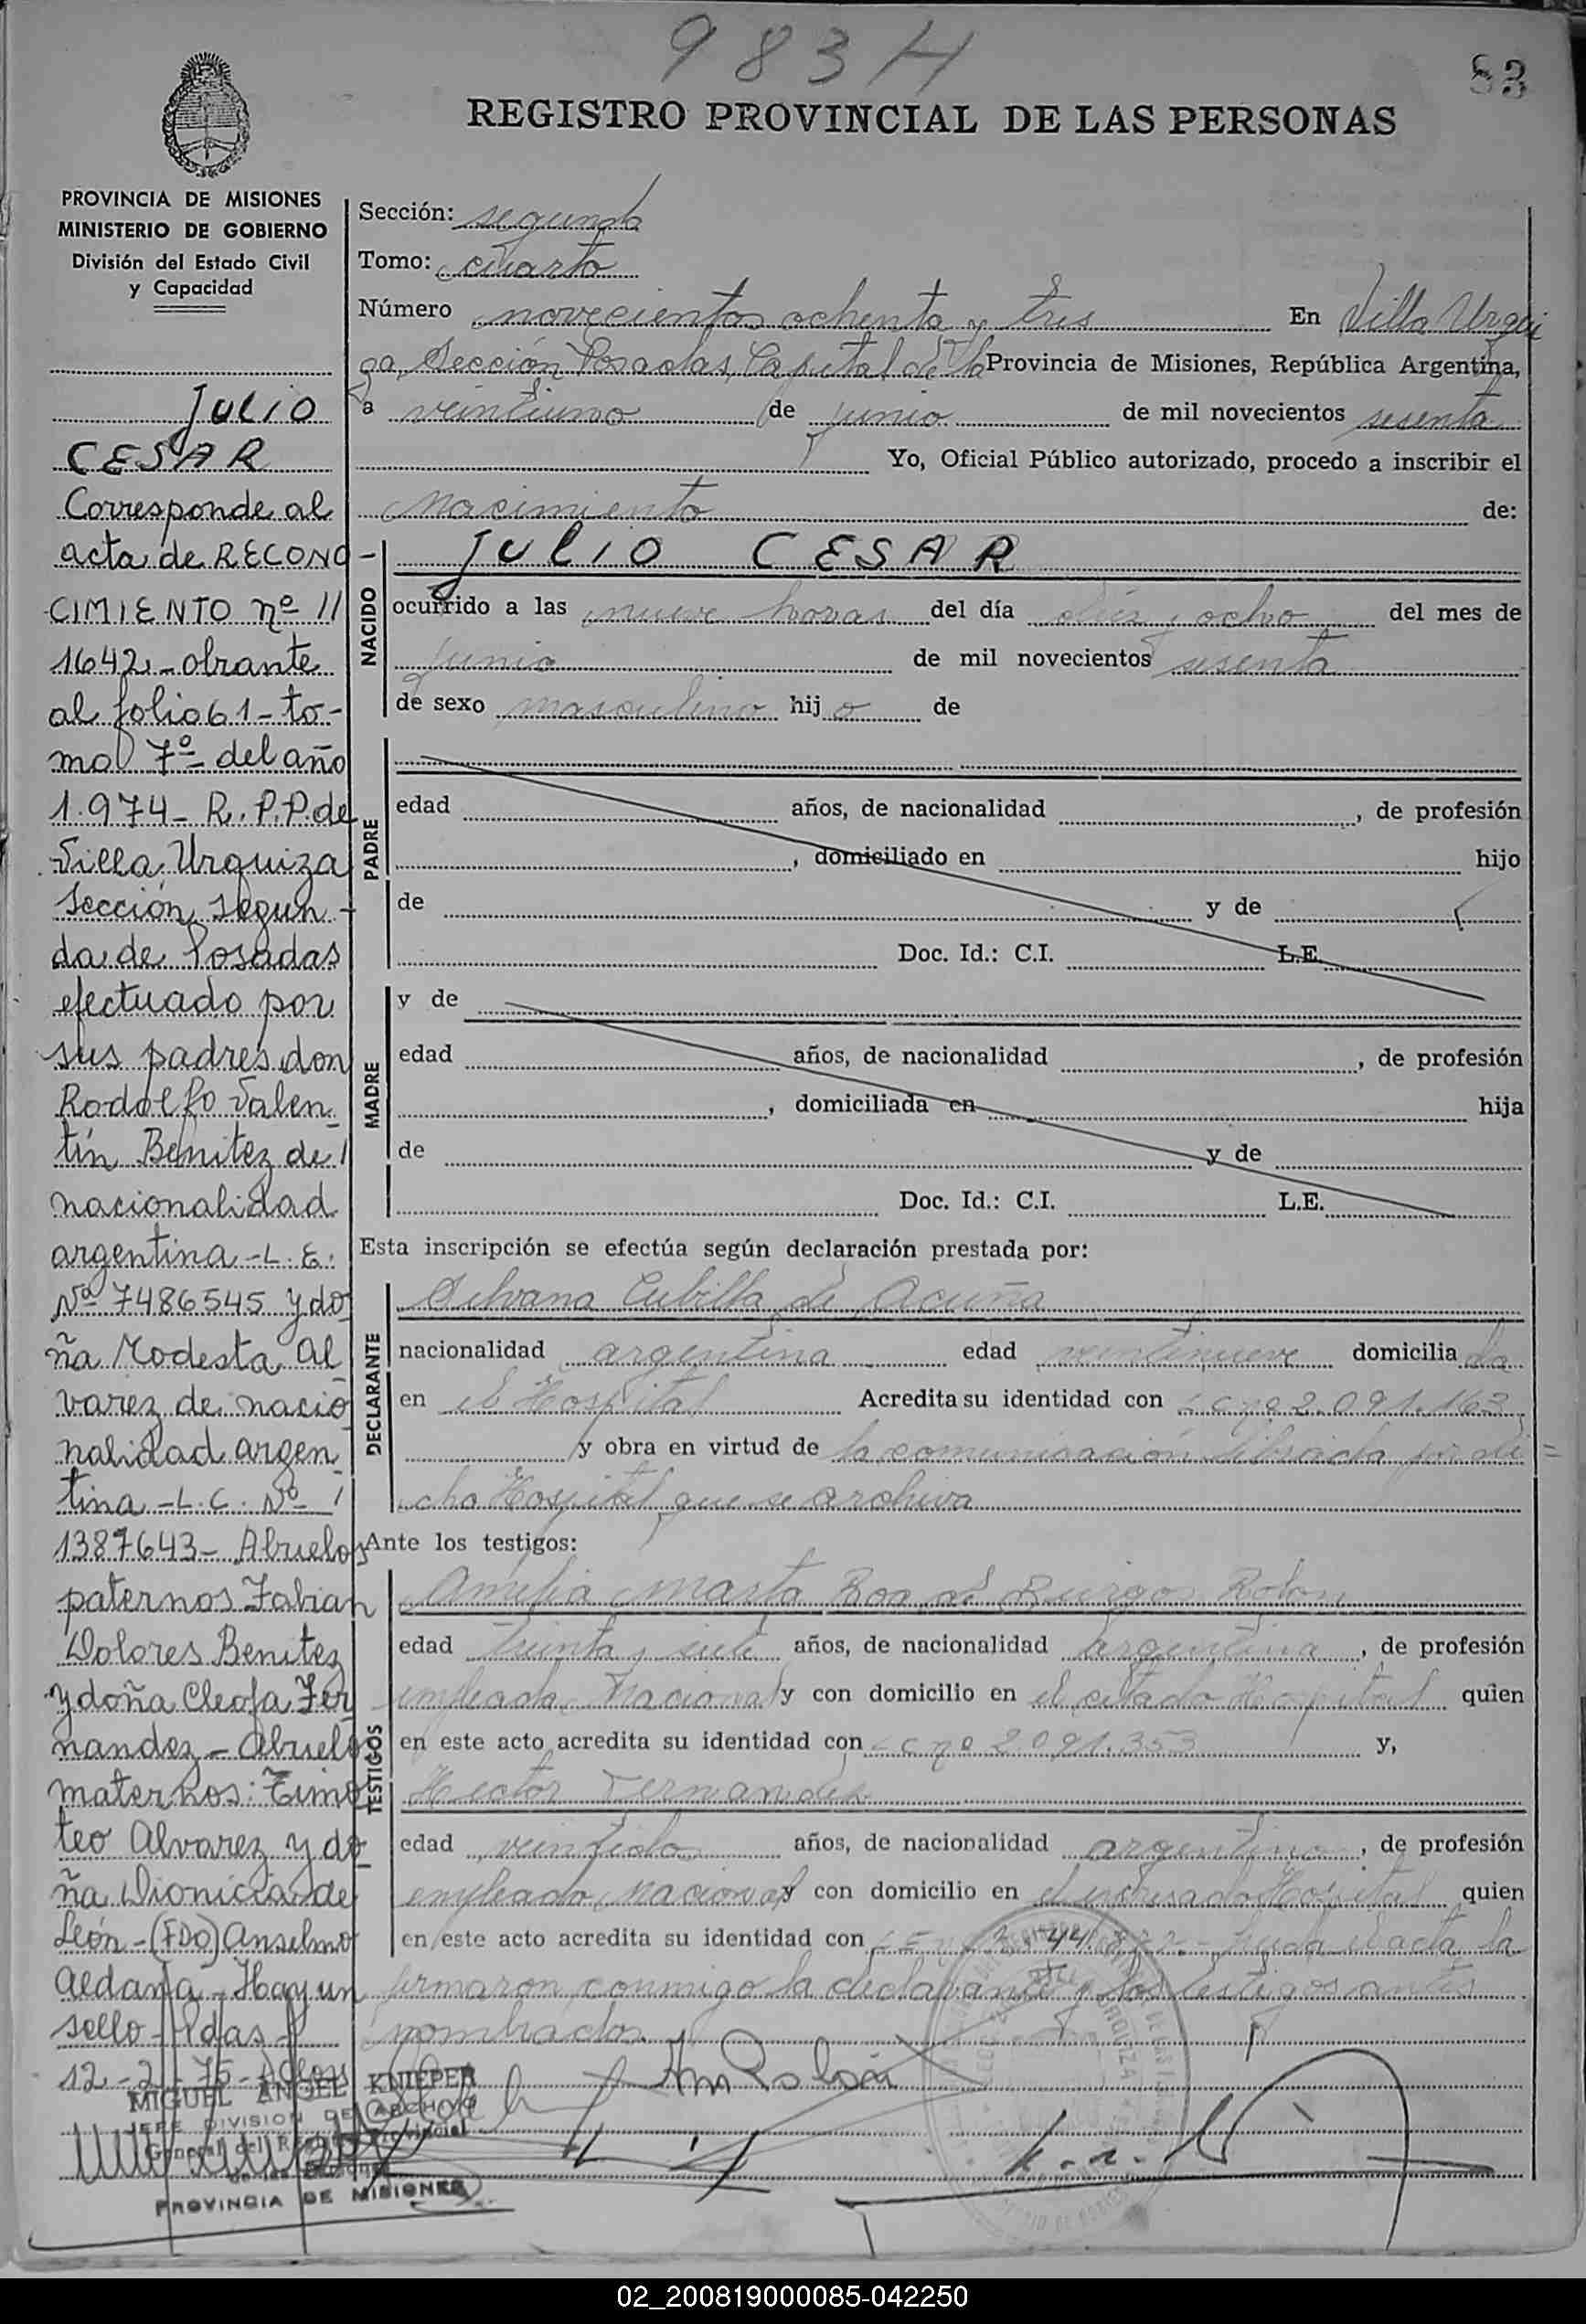 983 H
83
REGISTRO PROVINCIAL DE LAS PERSONAS
PROVINCIA DE MISIONES
MINISTERIO DE GOBIERNO
División del Estado Civil
y Capacidad
JULIO
CESAR
Corresponde al
acta de RECONO-
CIMIENTO nº 11
1642,-obrante
al folio 61-to-
mo 7º- del año
1.974- R.P.P. de
Villa Urquiza
sección segun-
da de Posadas
efectuado por
sus padres don
Rodolfo Valen-
tín Benitez de
nacionalidad
argentina -L.E.
Nº 7486545 y do-
ña Modesta Al-
varez de nacio-
nalidad argen-
tina -L.C. Nº-
1387643- Abuelos
paternos Fabian
Dolores Benitez
y doña Cleofa Fer-
nandez - Abuelos
maternos: Timo-
teo Alvarez y do-
ña Dionicia de
León-(FDO) Anselmo
Aldana - Hay un
sello - Pdas -
12-2-75-
MIGUEL ANGEL KNIEPER
JEFE DIVISION DE ARCHIVO
General del Provincial
PROVINCIA DE MISIONES
Sección: segunda
Tomo: cuarto
Número novecientos ochenta y tres En Villa Urqui
za, Sección Posadas, Capital de la Provincia de Misiones, República Argentina,
a veintiuno de junio de mil novecientos sesenta
Yo, Oficial Público autorizado, procedo a inscribir el
nacimiento de:
NACIDO
JULIO CESAR
ocurrido a las nueve horas del día diez y ocho del mes de
junio de mil novecientos sesenta
de sexo masculino hijo de
PADRE
edad años, de nacionalidad , de profesión
, domiciliado en hijo
de y de
Doc. Id.: C.I. L.E.
MADRE
y de
edad años, de nacionalidad , de profesión
, domiciliada en hija
de y de
Doc. Id.: C.I. L.E.
Esta inscripción se efectúa según declaración prestada por:
DECLARANTE
Silvana Cubilla de Acuña
nacionalidad argentina edad veintinueve domiciliada
en el Hospital Acredita su identidad con LC nº 2.091.163
y obra en virtud de la comunicación librada por di=
cho Hospital que se archiva
Ante los testigos:
TESTIGOS
Amelia Marta Roa de Burgos Rolon
edad treinta y siete años, de nacionalidad argentina, de profesión
empleada Nacional y con domicilio en el citado Hospital quien
en este acto acredita su identidad con LC nº 2.091.353 y,
Hector Fernandez
edad veintidos años, de nacionalidad argentino, de profesión
empleado Nacional y con domicilio en el expresado Hospital quien
en este acto acredita su identidad con LE nº leida el acta la
firmaron conmigo la declarante y los testigos antes
nombrados.
02_200819000085-042250